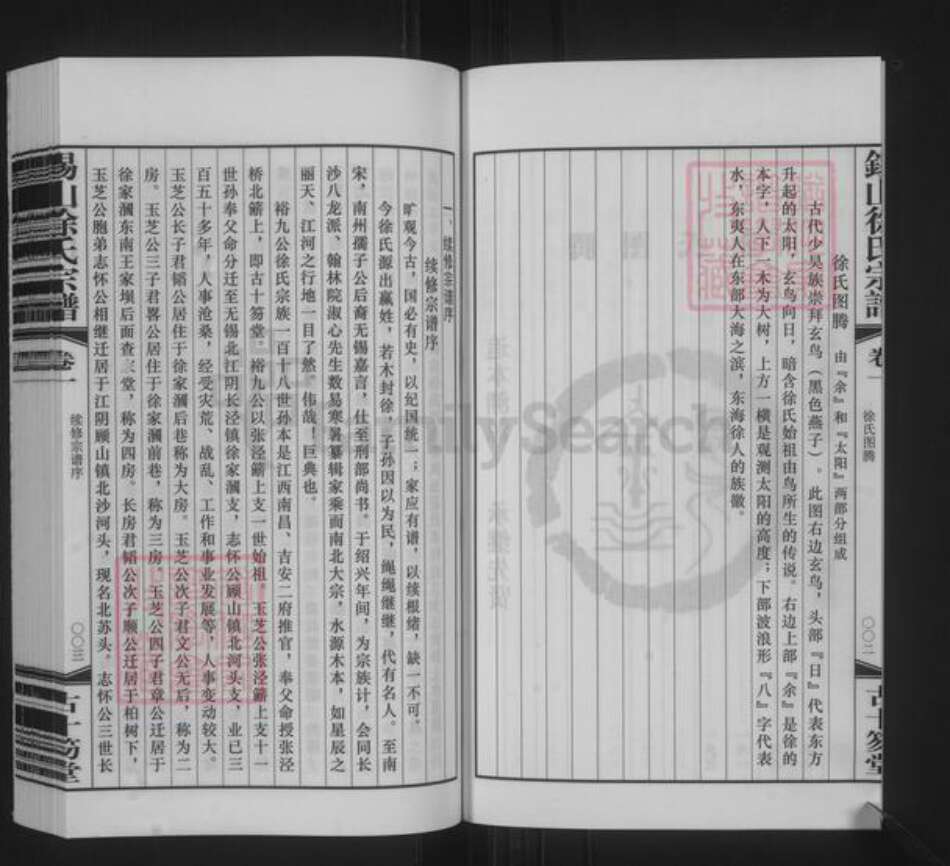 锡山徐氏宗谱
卷一
徐氏图腾
〇〇二
古十笏堂
徐氏图腾 由『余』和『太阳』两部分组成
古代少昊族崇拜玄鸟（黑色燕子）。此图右边玄鸟，头部『日』代表东方
升起的太阳，玄鸟向日，暗含徐氏始祖由鸟所生的传说。右边上部『余』是徐的
本字，人下一木为大树，上方一横是观测太阳的高度；下部波浪形『八』字代表
水，东夷人在东部大海之滨，东海徐人的族徽。
一、续修宗谱序
续修宗谱序
旷观今古，国必有史，以纪国统一；家应有谱，以续根绪，缺一不可。
今徐氏源出嬴姓，若木封徐，子孙因以为民，绳绳继继，代有名人。至南
宋，南州孺子公后裔无锡嘉言，仕至刑部尚书。于绍兴年间，为宗族计，会同长
沙八龙派、翰林院淑心先生数易寒暑纂辑家乘而南北大宗，水源木本，如星辰之
丽天、江河之行地一目了然。伟哉！巨典也。
裕九公徐氏宗族一百十八世孙本是江西南昌、吉安二府推官，奉父命授张泾
桥北簖上，即古十笏堂。裕九公以张泾簖上支一世始祖，玉芝公张泾簖上支十一
世孙奉父命分迁至无锡北江阴长泾镇徐家 支，志怀公顾山镇北河头支，业已三
百五十多年，人事沧桑，经受灾荒、战乱、工作和事业发展等，人事变动较大。
玉芝公长子君韬公居住于徐家 后巷称为大房。玉芝公次子君文公无后，称为二
房。玉芝公三子君畧公居住于徐家 前巷，称为三房。玉芝公四子君章公迁居于
徐家 东南王家坝后面查三堂，称为四房。长房君韬公次子顺公迁居于柏树下，
玉芝公胞弟志怀公相继迁居于江阴顾山镇北沙河头，现名北苏头。志怀公三世长
锡山徐氏宗谱
卷一
续修宗谱序
〇〇三
古十笏堂
FamilySearch